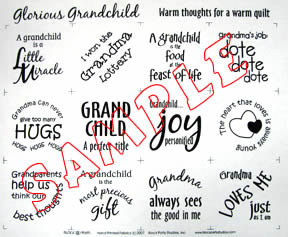 Glorious Grandchild
Warm thoughts for a warm quilt
A grandchild
is a
Little
Miracle
I won the
Grandma
Lottery
A grandchild
is the
food
at the
feast of life
grandma's job
dote
dote
dote
Grandma can never
give too many
HUGS
HUGS HUGS HUGS
GRAND
CHILD
A perfect title
Grandchild...
joy
personified
The heart that loves is
forever young
Grandparents
help us
think our
best thoughts
A grandchild
is the
most precious
gift
Grandma
always sees
the good in me
Grandma
LOVES ME
just
as I am
SAMPLE